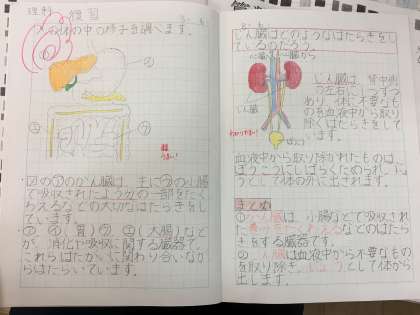 理科
練習
人の体の中の様子を調べます。
・㋐の㋑のかん臓は、主に㋒の小腸
で吸収されたようぶんの一部をたく
わえるなどの大切なはたらきをし
ています。
(胃)
(大腸)など
が、消化や吸収に関する臓器で、
これらはたがいに関わり合いなが
らはたらいています。
じん臓はどのようなはたらきをし
ているのだろう。
心臓へ
心臓から
じん臓
ぼうこう
じん臓は、背中側
の左右に1つずつ
あり、体に不要なも
のを血液中から取り
除くはたらきをして
います。
血液中から取り除かれたものは、
ぼうこうにしばらくためられ、にょ
うとして体の外に出されます。
まとめ
かん臓は、小腸などで吸収され
たようぶんをたくわえるなどのはたら
きをする臓器です。
じん臓は血液中から不要なもの
を取り除き、にょうとして体から
出します。